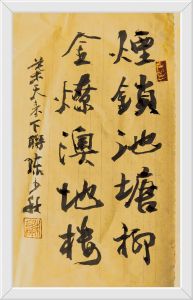 煙鎖池塘柳
金燎澳地樓
葉天来下聯 陈少